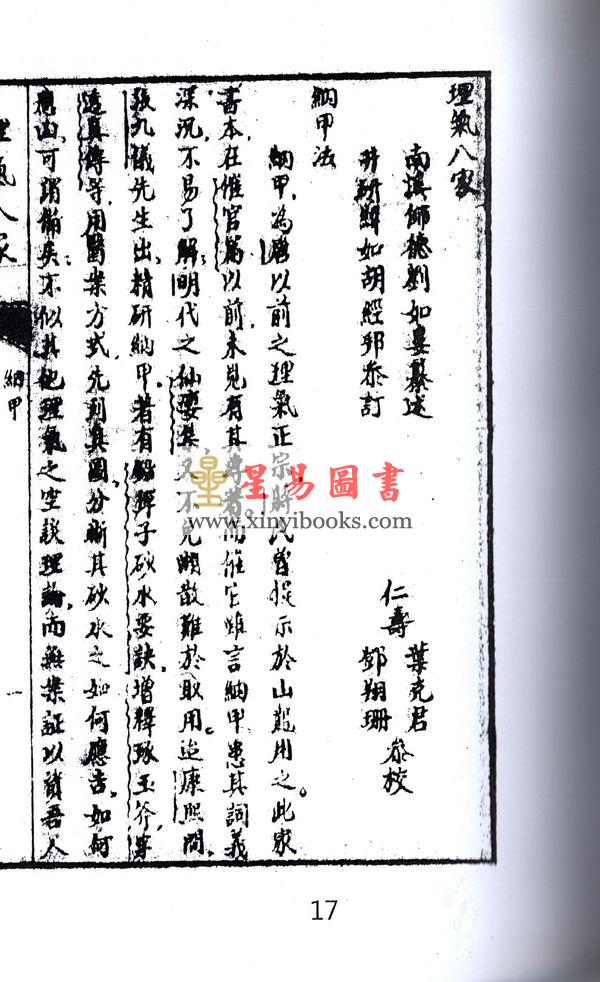 理氣八家
南溪師德劉如 纂述
井研 如胡經邦叅訂
仁壽 葉克君
鄧翔珊 叅校
納甲法
納甲,為唐以前之理氣正宗,時 氏曾提示於山龍用之。此家
書本,在催官篇以前,未見有其專者。而催官雖言納甲,患其詞義
深沉,不易了解,明代之仙婆集又不免顚散難於取用。迨康熙間,
張九儀先生出,精研納甲。若有 彈子砂水要訣,增釋琢玉斧,
真傳等,用醫案方式,先列其圖,分晰其砂水之如何應吉,如何
山,可謂備矣。不似其他理氣之空談理論,而無案証以資吾人
理氣八家
納甲
一
星易圖書
www.xinyibooks.com
17